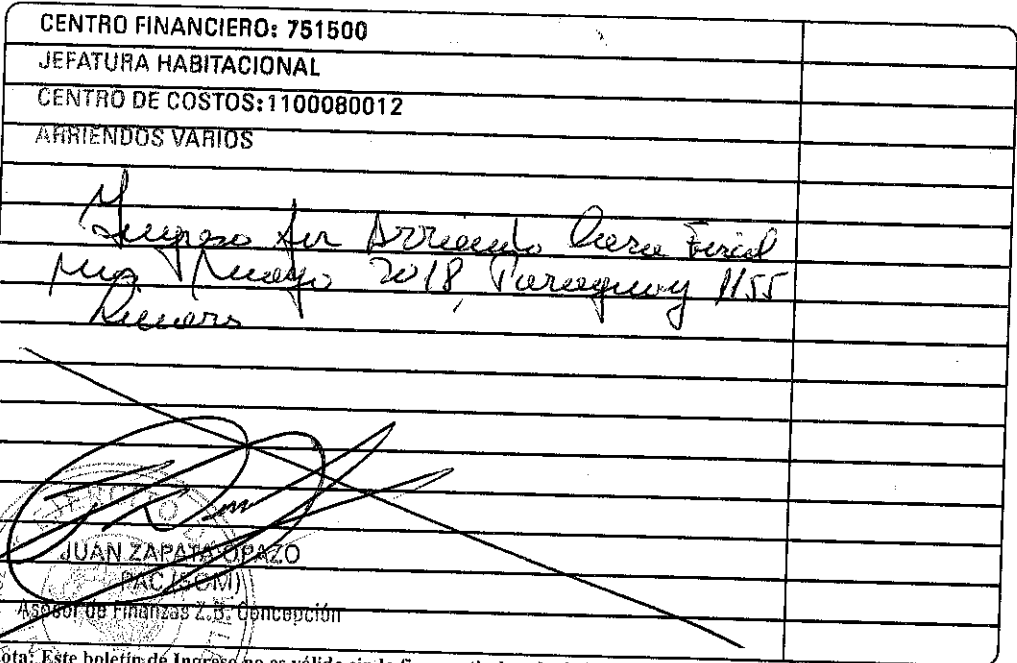 CENTRO FINANCIERO: 751500
JEFATURA HABITACIONAL
CENTRO DE COSTOS:1100080012
ARRIENDOS VARIOS
Ingreso por Arriendo Casa Fiscal
Mes Mayo 2018, Paraguay 1155
EJERCITO
JUAN ZAPATA OPAZO
PAC (SOM)
Asesor de Finanzas Z.B. Concepción
Nota: Este boletín de Ingreso no es válido sin la firma